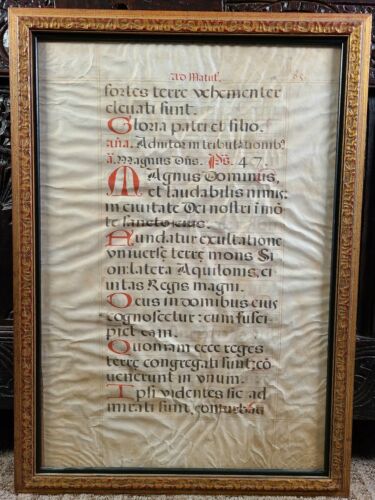 Ad Matut.
85
fortes terre vehementer
elevati sunt.
Gloria patri et filio.
aña. Adiutor in tribulationib⁹
ã. Magnus Dñs. Ps. 47.
Magnus Dominus,
et laudabilis nimis:
in civitate Dei nostri i mõ
te sancto eius.
Fundatur exultatione
universe terre mons Si
on: latera Aquilonis, ci
vitas Regis magni.
Deus in domibus eius
cognoscetur: cum susci
piet eam.
Quoniam ecce reges
terre congregati sunt: cõ
venerunt in unum.
Ipsi videntes sic ad
mirati sunt, conturbati